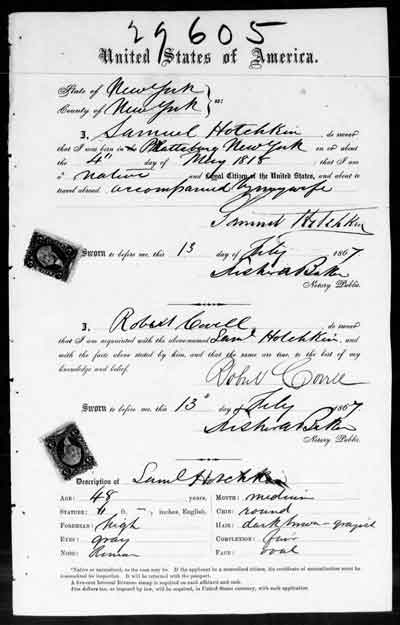 29605
United States of America.
State of New York
County of New York } ss:
I, Samuel Hotchkin, do swear
that I was born in Plattsburg New York on or about
the 4th day of May 1818; that I am
a *native and Loyal Citizen of the United States, and about to
travel abroad. accompanied by my wife
Samuel Hotchkin
Sworn to before me, this 13 day of July 1867
Notary Public.
I, Robert Covell, do swear
that I am acquainted with the above-named Saml Hotchkin, and
with the facts above stated by him, and that the same are true, to the best of my
knowledge and belief.
Robert Covell
Sworn to before me, this 13th day of July 1867
Notary Public.
Description of Saml Hotchkin
Age: 48 years, Mouth: medium
Stature: ft. inches, English. Chin: round
Forehead: high Hair: dark brown - grayish
Eyes: gray Complexion: fair
Nose: Roman Face: oval
*Native or naturalized, as the case may be. If the applicant be a naturalized citizen, the certificate of naturalization must be
transmitted for inspection. It will be returned with the passport.
A five-cent Internal Revenue stamp is required on each affidavit and oath.
Five dollars tax, as imposed by law, will be required, in United States currency, with each application.